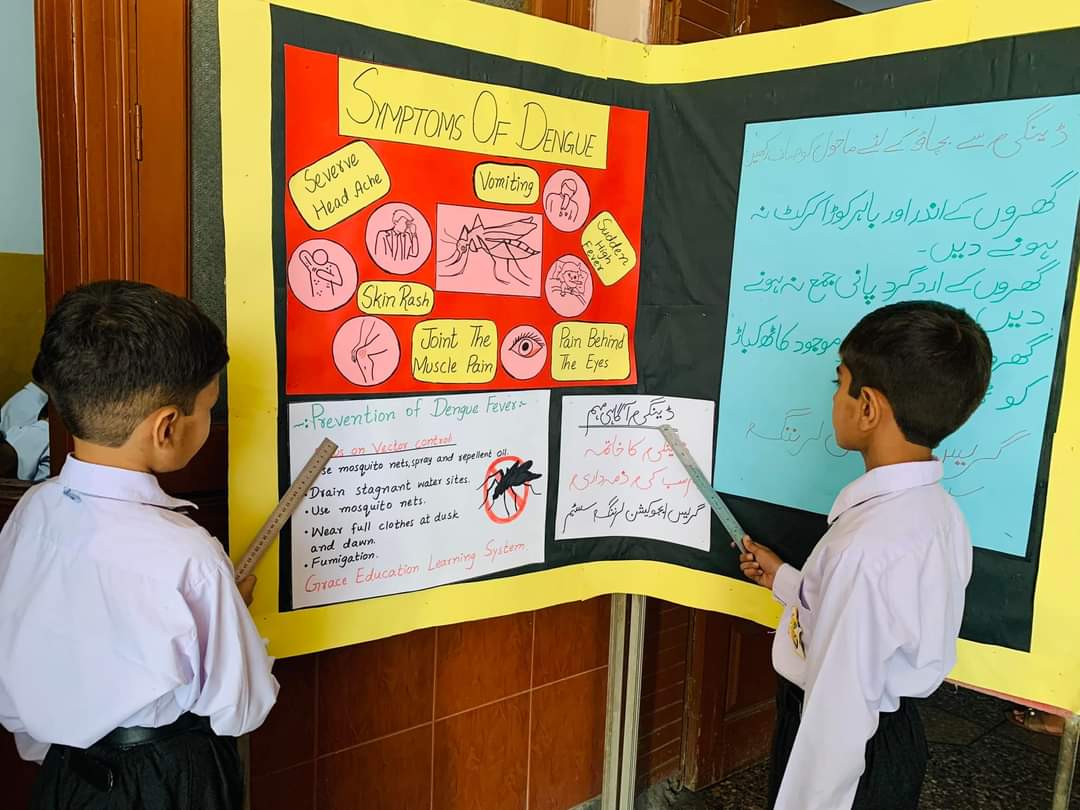 SYMPTOMS OF DENGUE
Severve
Head Ache
Vomiting
Sudden
High
Fever
Skin Rash
Joint The
Muscle Pain
Pain Behind
The Eyes
-:Prevention of Dengue Fever:-
on Vector control
mosquito nets, spray and repellent oil.
• Drain stagnant water sites.
• Use mosquito nets.
• Wear full clothes at dusk
and dawn.
• Fumigation.
Grace Education Learning System.
ڈینگی آگاہی مہم
کا خاتمہ
سب کی ذمہ داری
گریس ایجوکیشن لرننگ سسٹم
ڈینگی سے بچاؤ کے لئے ماحول کو صاف رکھیں
گھروں کے اندر اور باہر کوڑا کرکٹ نہ
ہونے دیں۔
گھروں کے اردگرد پانی جمع نہ ہونے
دیں
موجود کاٹھ کباڑ
کو
گریس
لرننگ